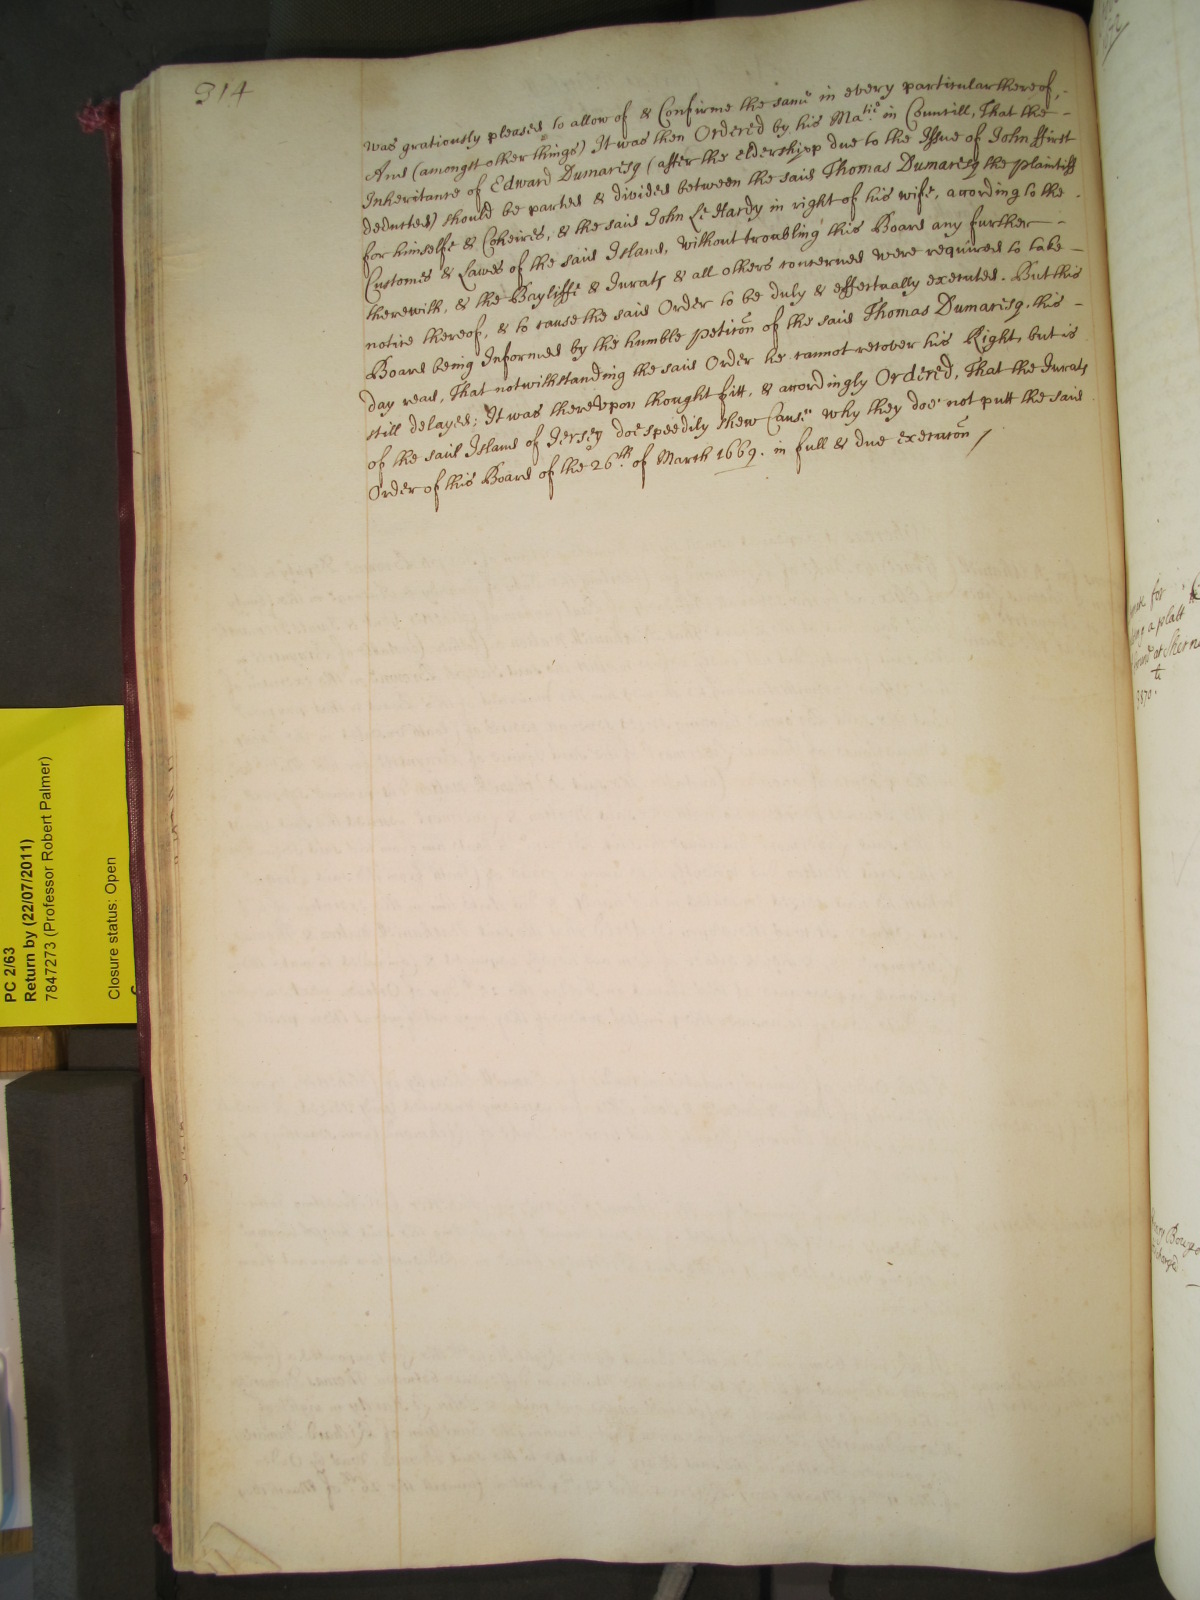 314
was gratiously pleased to allow of & Confirme the same in every particular thereof,
And (amongst other things) It was then Ordered by his Ma:tie in Councill, That the
Inheritance of Edward Dumaresq (after the eldershipp due to the Issue of John ffirst
deducted) should be parted & divided between the said Thomas Dumaresq the plaintiff
for himselfe & Coheires, & the said John Le Hardy in right of his wife, according to the
Customes & Lawes of the said Island, without troubling this Board any further
therewith, & the Bayliffe & Jurats & all others concerned were required to take
notice thereof, & to cause the said Order to be duly & effectually executed. But this
Board being Informed by the humble petićon of the said Thomas Dumaresq. this
day read, That notwithstanding the said Order he cannot recover his Right, but is
still delayed; It was thereupon thought fitt, & accordingly Ordered, That the Jurats
of the said Island of Jersey doe speedily shew Cause why they doe not putt the said
Order of this Board of the 26:th of March 1669. in full & due execucon /
PC 2/63
Return by (22/07/2011)
7847273 (Professor Robert Palmer)
Closure status: Open
for
a platt
at Shern